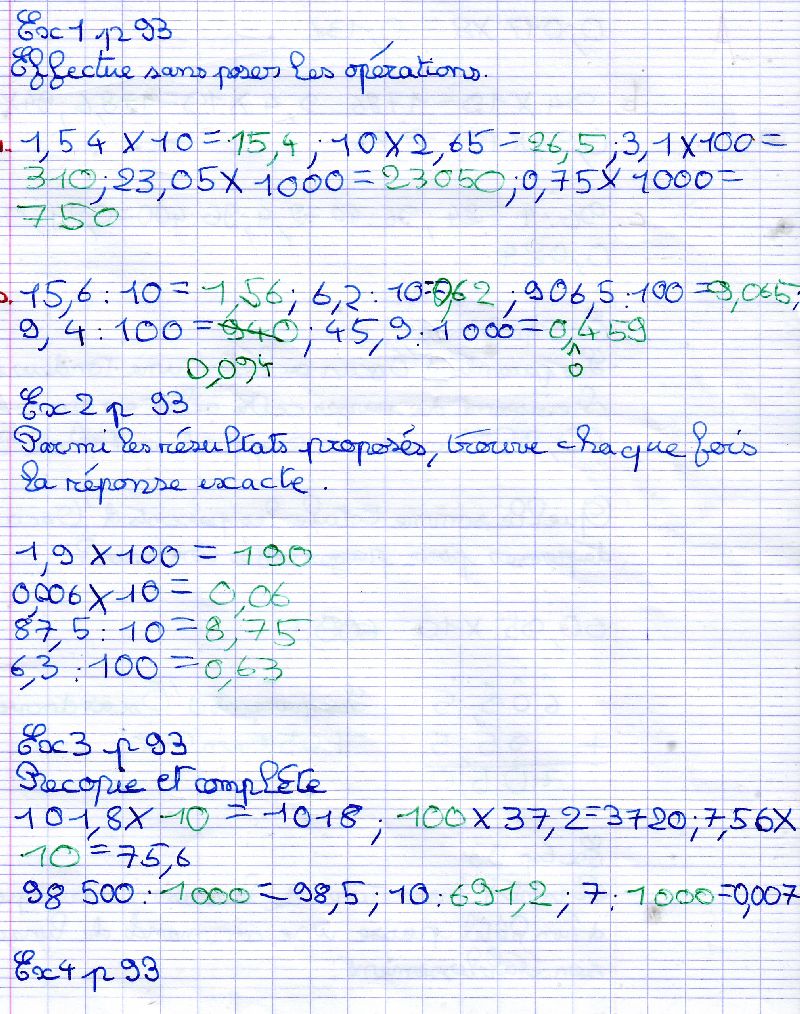 Ex 1 p 93
Effectue sans poser les opérations.
1,54 × 10 = 15,4 ; 10 × 2,65 = 26,5 ; 3,1 × 100 =
310 ; 23,05 × 1000 = 23050 ; 0,75 × 1000 =
750
15,6 : 10 = 1,56 ; 6,2 : 10 = 0,62 ; 906,5 : 100 = 9,065 ;
9,4 : 100 = 940 ; 45,9 : 1000 = 0,459
0,094 0
Ex 2 p 93
Parmi les résultats proposés, trouve chaque fois
la réponse exacte.
1,9 × 100 = 190
0,006 × 10 = 0,06
87,5 : 10 = 8,75
6,3 : 100 = 0,63
Ex 3 p 93
Recopie et complète
101,8 × 10 = 1018 ; 100 × 37,2 = 3720 ; 7,56 ×
10 = 75,6
98 500 : 1000 = 98,5 ; 10 : 691,2 ; 7 : 1000 = 0,007
Ex 4 p 93